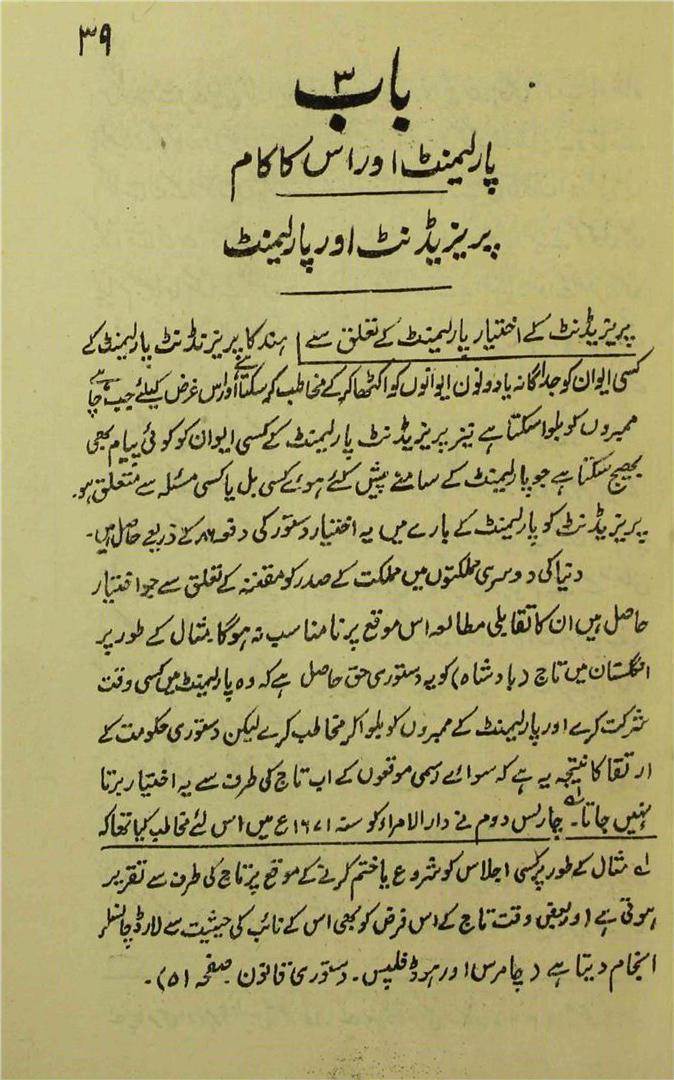 ۳۹
باب ۳
پارلیمنٹ اور اس کا کام
پریزیڈنٹ اور پارلیمنٹ
پریزیڈنٹ کے اختیار پارلیمنٹ کے تعلق سے | ہند کا پریزنڈنٹ پارلیمنٹ کے
کسی ایوان کو جداگانہ یا دونوں ایوانوں کو اکٹھا کر کے مخاطب کر سکتا ہے اور اس غرض کیلئے جب چاہے
ممبروں کو بلوا سکتا ہے نیز پریزیڈنٹ پارلیمنٹ کے کسی ایوان کو کوئی پیام بھی
بھیج سکتا ہے جو پارلیمنٹ کے سامنے پیش کئے ہوئے کسی بل یا کسی مسئلہ سے متعلق ہو۔
پریزیڈنٹ کو پارلیمنٹ کے بارے میں یہ اختیار دستور کی دفعہ ۸۶ کے ذریعے حاصل ہیں۔
دنیا کی دوسری مملکتوں میں مملکت کے صدر کو مقننہ کے تعلق سے جو اختیار
حاصل ہیں ان کا تقابلی مطالعہ اس موقع پر نامناسب نہ ہوگا مثال کے طور پر
انگلستان میں تاج (بادشاہ) کو یہ دستوری حق حاصل ہے کہ وہ پارلیمنٹ میں کسی وقت
شرکت کرے اور پارلیمنٹ کے ممبروں کو بلوا کر مخاطب کرے لیکن دستوری حکومت کے
ارتقا کا نتیجہ یہ ہے کہ سوائے رسمی موقعوں کے اب تاج کی طرف سے یہ اختیار برتا
نہیں جاتا۔ لہ چارلس دوم نے دارالامراء کو سنہ ۱۶۷۱ع میں اس لئے مخاطب کیا تھا کہ
لہ مثال کے طور پر کسی اجلاس کو شروع یا ختم کرنے کے موقع پر تاج کی طرف سے تقریر
ہوتی ہے اور بعض وقت تاج کے اس فرض کو بھی اس کے نائب کی حیثیت سے لارڈ چانسلر
انجام دیتا ہے (چامرس اور ہوڈ فلپس۔ دستوری قانون صفحہ ۵۱)۔